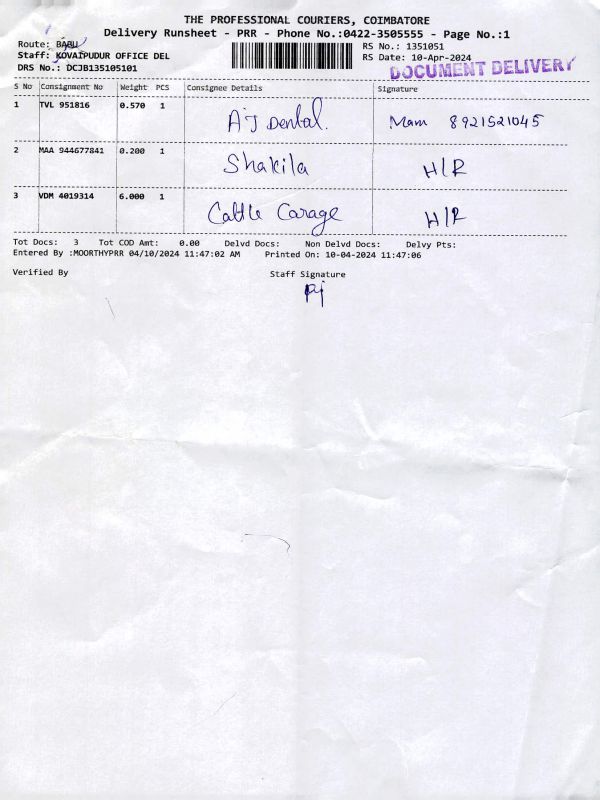 THE PROFESSIONAL COURIERS, COIMBATORE
Delivery Runsheet - PRR - Phone No.:0422-3505555 - Page No.:1
Route: BABU
RS No.: 1351051
Staff: KOVAIPUDUR OFFICE DEL
RS Date: 10-Apr-2024
DRS No.: DCJB135105101
DOCUMENT DELIVERY
S No Consignment No Weight PCS Consignee Details Signature
1 TVL 951816 0.570 1 AJ Dental. Mam 8921521045
2 MAA 944677841 0.200 1 Shakila H/R
3 VDM 4019314 6.000 1 Cattle Carage H/R
Tot Docs: 3 Tot COD Amt: 0.00 Delvd Docs: Non Delvd Docs: Delvy Pts:
Entered By :MOORTHYPRR 04/10/2024 11:47:02 AM Printed On: 10-04-2024 11:47:06
Verified By Staff Signature